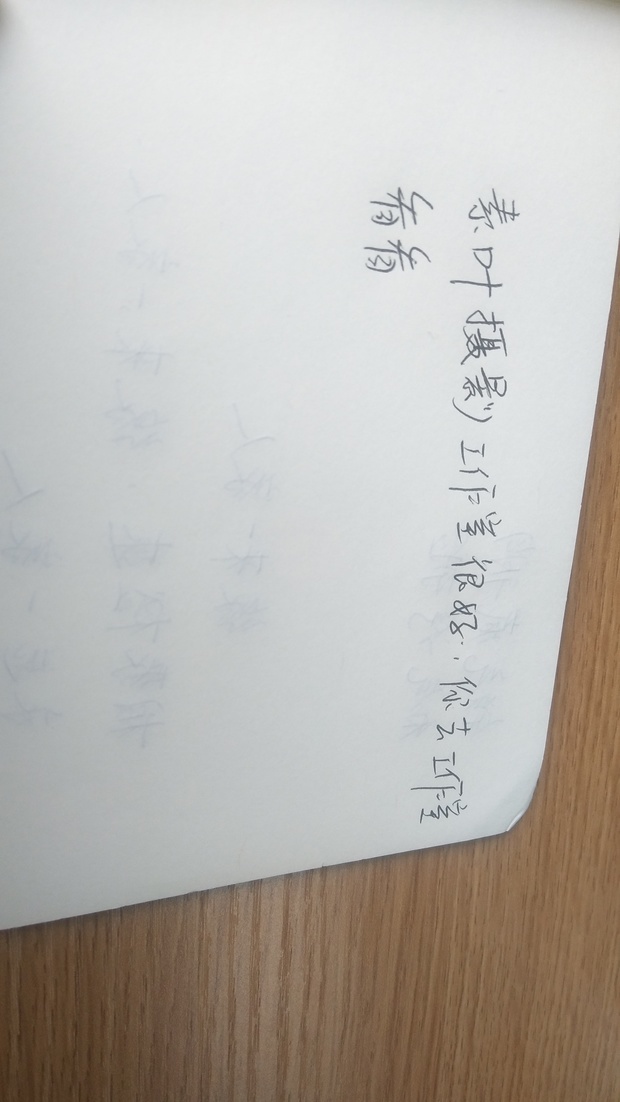 素叶摄影工作室很好，你去工作室
看看